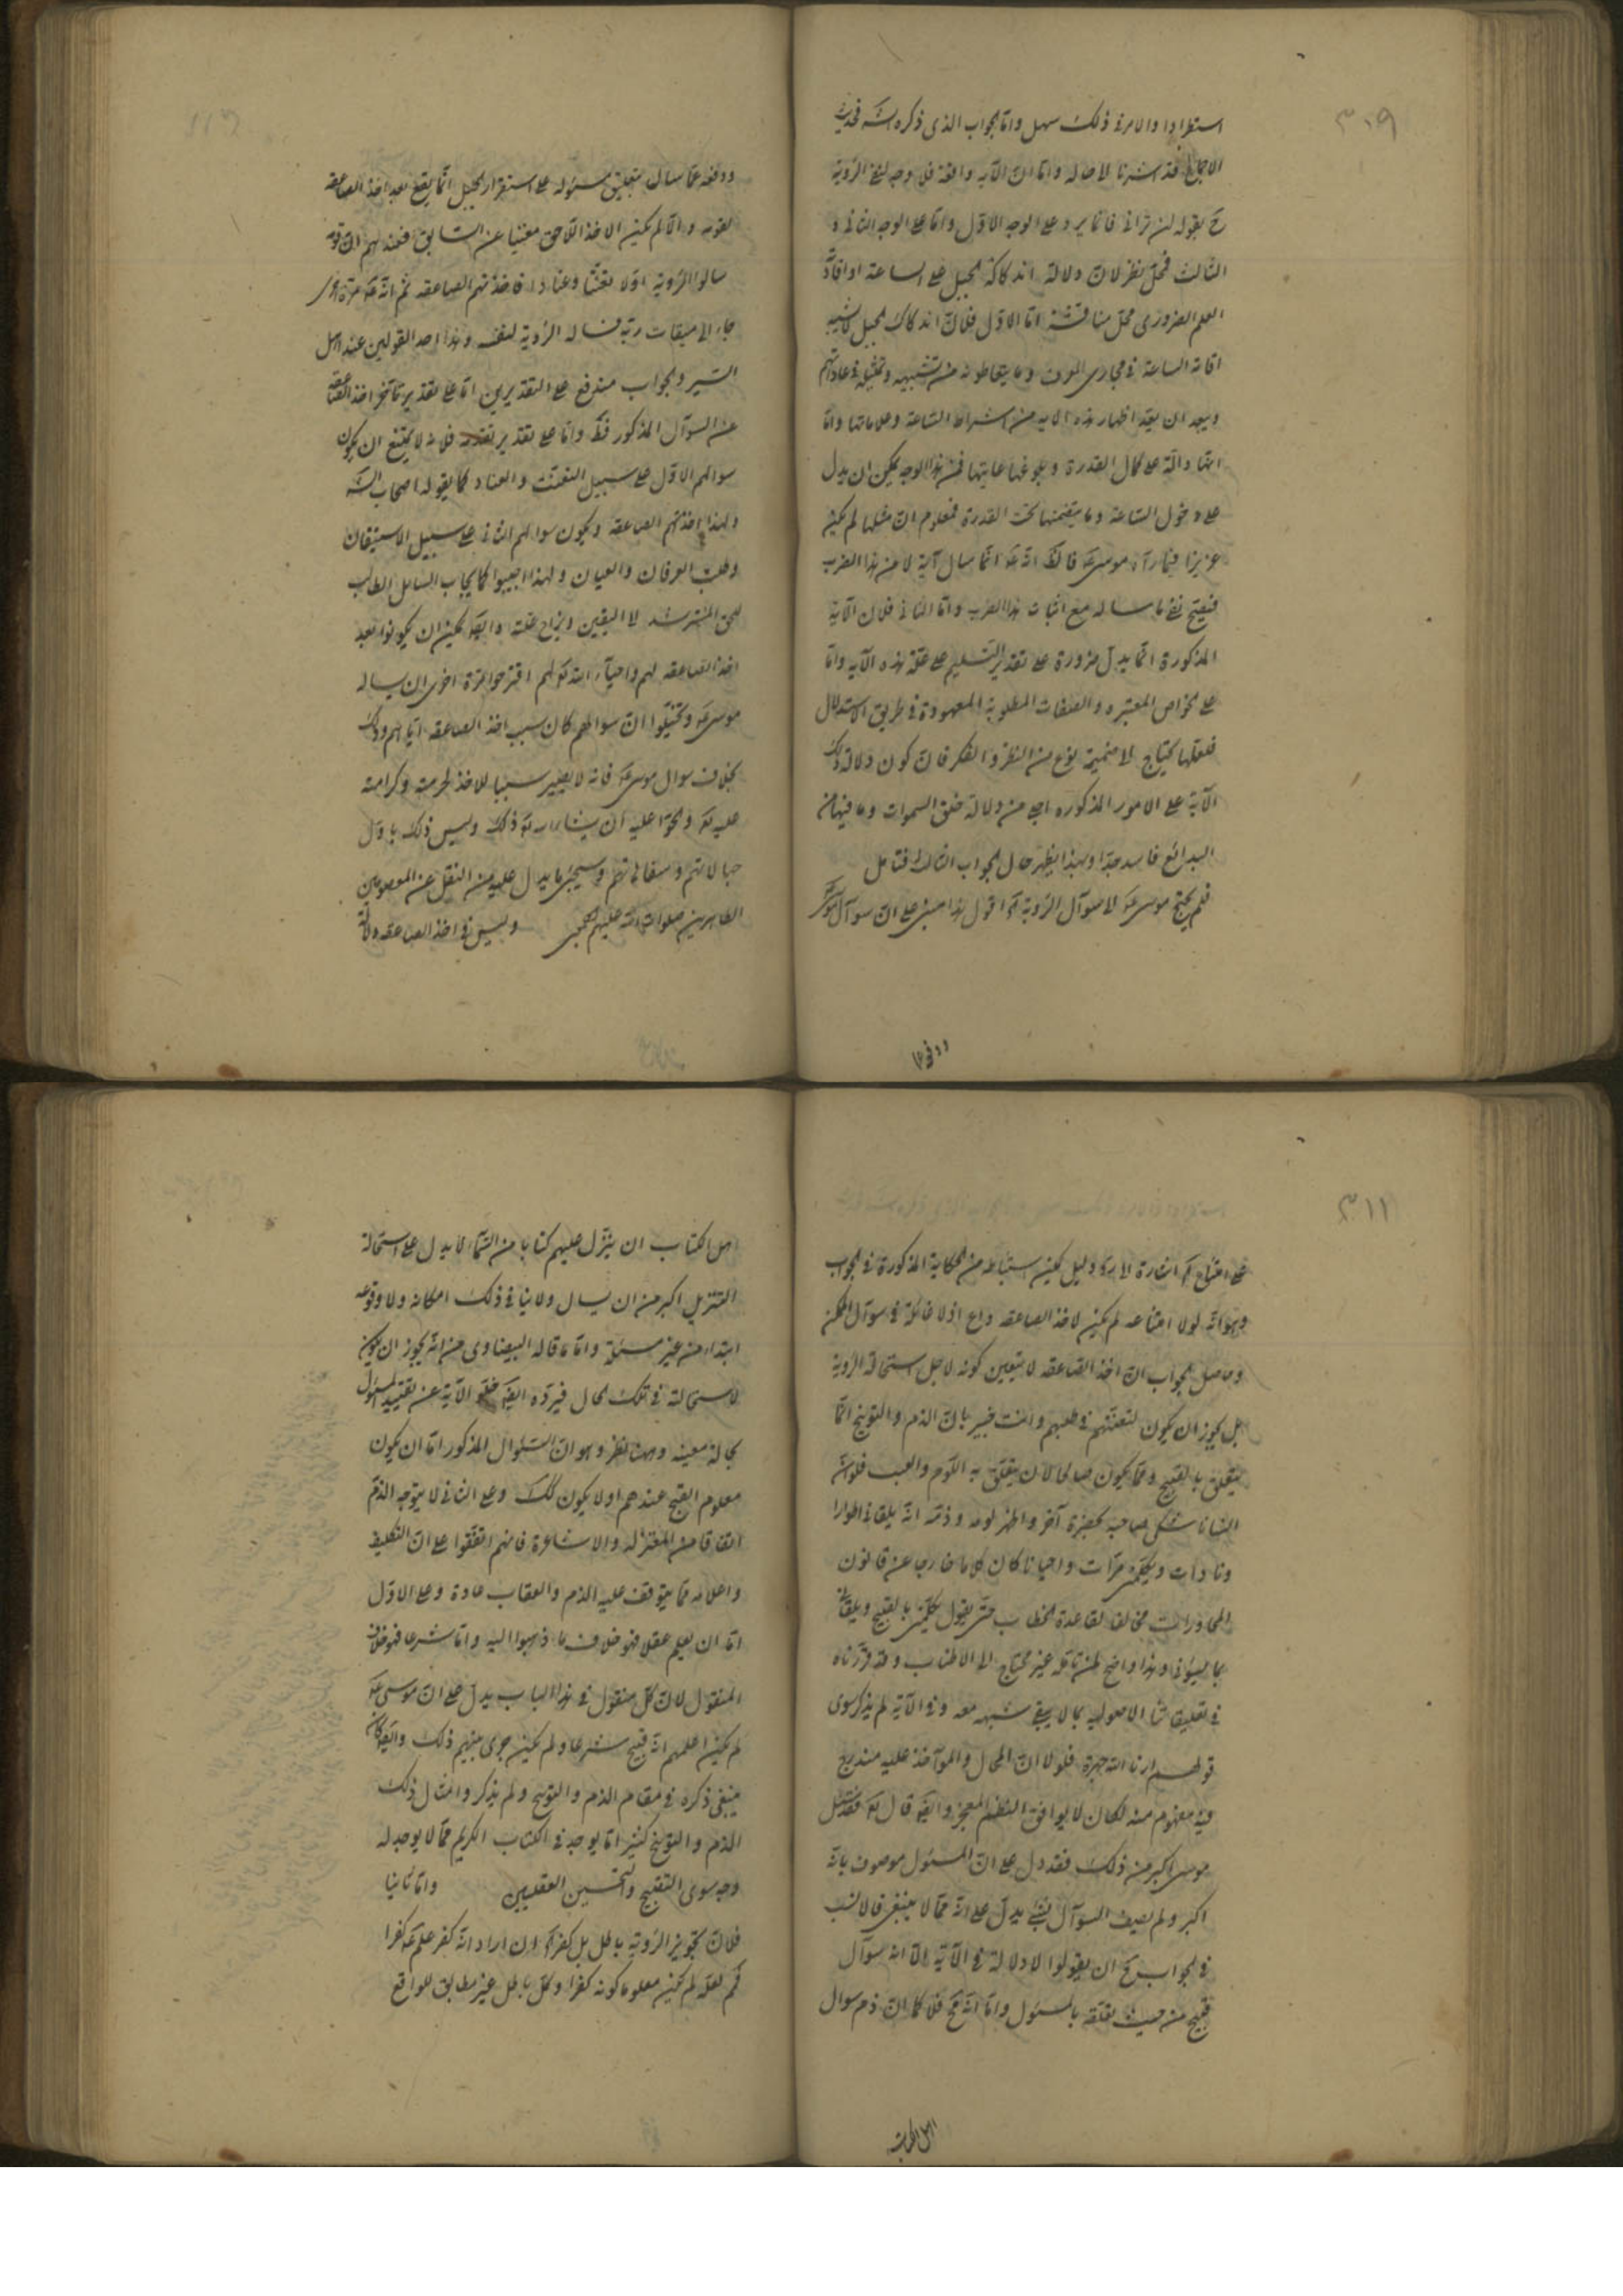 ٣٠٩
استطرادا والامر فى ذلك سهل واما الجواب الذى ذكره
الاجماع قد اشرنا لا حاله واما ان الآيه واقعة فلا وجه لنفى الرؤية
ح بقوله لن ترانى فانما يرد على الوجه الاول واما على الوجه الثانى و
الثالث فمحل نظر لان دلالة اندكاكة الجبل على الساعة او افادة
العلم الضرورى محل مناقشة اما الاول فلان اندكاك الجبل لا يشبه
اقامة الساعة فى مجارى العرف وما يتعاطونه من تشبيه وتمثيل فى عاداتهم
ويبعد ان يقع اظهار هذه الايه من اشراط الساعة وعلاماتها واما
انها دالة على كمال القدرة وبلوغها غايتها فمن هذا الوجه يمكن ان يدل
على دخول الساعة وما يتضمنها تحت القدرة فمعلوم ان مثلها لم يكن
عزيزا فيما رآه موسى ع قالظ انه ع انما سال آية لا عن هذا الضرب
فيقبح نفى ما ساله مع اثبات هذا الضرب واما الثانى فلان الآية
المذكورة انما يدل ضرورة على تقدير التسليم على عظمة هذه الآيه واما
على الخواص المعتبره والصفات المطلوبة المعهودة فى طريق الاستدلال
فلعلها يحتاج لا ضميمة نوع من النظر والفكر فان كون دلالة تلك
الآية على الامور المذكوره اجلى من دلالة خلق السموات وما فيها من
البدائع فاسد جدا وبهذا يظهر حال الجواب الثالث فتامل
فلم يحتج موسى ع لا سوآل الرؤية آه اقول هذا مبنى على ان سوآل موسى
ودفعه عما سال بتعليق مسئوله على استقرار الجبل انما يقع بعد اخذ الصاعقة
لقومه والا لم يكن الاخذ اللاحق مغنيا عن السابق فعندهم ان قومه
سالوا الرؤية اولا تعنتا وعنادا فاخذتهم الصاعقه ثم انه ع مرة اخرى
جاء الى ميقات ربه فساله الرؤية لنفسه وهذا احد القولين عند اهل
السير والجواب مندفع على التقديرين اما على تقدير تاخر اخذ الصاعقة
عن السوآل المذكور فظ واما على تقدير تقدمه فلانه لا يمتنع ان يكون
سوالهم الاول على سبيل التعنت والعناد كما يقوله اصحاب السنه
ولهذا اخذتهم الصاعقه ويكون سوالهم الثانى على سبيل الاستيقان
وطلب العرفان والعيان ولهذا اجيبوا كما يجاب السايل الطالب
للحق المسترشد لا اليقين ويزاح علته وايضا يمكن ان يكونوا بعد
اخذ الصاعقه لهم واحياء الله لهم اقترحوا مرة اخرى ان يساله
موسى ع وتخيلوا ان سوالهم كان سبب اخذ الصاعقه اياهم وذلك
بخلاف سوال موسى ع فانه لا يصير سببا للاخذ لحرمته وكرامته
عليه تع والحوا عليه ان ذلك وليس ذلك باول
جهالاتهم وسفاهاتهم وسيجئ ما يدل عليه من النقل عن المعصومين
الطاهرين صلوات الله عليهم اجمعين وليس فى اخذ الصاعقه دلالة
ودفعه
٣١١
على امتناع آه اشارة الى رد دليل يمكن استنباطه من الحكاية المذكورة فى الجواب
وهو انه لولا امتناعه لم يكن لاخذ الصاعقه داع اذ لا غائلة فى سوآل الممكن
وحاصل الجواب ان اخذ الصاعقه لا يتعين كونه لاجل استحالة الرؤية
بل يجوز ان يكون لتعنتهم فى طلبهم وانت خبير بان الذم والتوبيخ انما
يتعلق بالقبيح وما يكون صالحا لان يتعلق به اللوم والعيب فلو ان
انسانا شكى صاحبه بحضرة آخر واظهر لومه وذمه انه يلقانى اطوارا
وتارات ويكلمنى مرات واحيانا كان كلاما خارجا عن قانون
المحاورات مخالفا لقاعدة الخطاب حتى يقول يكلمنى بالقبيح ويلقانى
بما يسؤنى وهذا واضح لمن تامله غير محتاج الى الاطناب وقد قررناه
فى تعليقاتنا الاصوليه بما لا يبقى شبهه معه وفى الآية لم يذكر سوى
قولهم ارنا الله جهرة فلولا ان المحال والمواخذ عليه مندرج
فيه مفهوم منه لكان لا يوافق النظم المعجز وايضا قال تع فقد سئل
موسى اكبر من ذلك فقد دل على ان المسئول موصوف بانه
اكبر ولم يصف السوآل بشئ يدل على انه مما لا ينبغى فالانسب
فى الجواب ح ان يقولوا لا دلالة فى الآية الا انه سوآل
قبيح من حيث تعلقه بالمسئول واما انه مح فلا كما ان ذم سوال
اهل الكتاب ان ينزل عليهم كتابا من السماء لا يدل على استحالة
التنزيل اكبر من ان يسال ولا ينافى ذلك امكانه ولا وقوعه
ابتداء من غير مسئلة واما ما قاله البيضاوى من انه يجوز ان يكون
لاستحالته فى تلك الحال فيرده ايضا خلو الآية عن تقييد المسئول
بحالة معينه وههنا نظر وهو ان السئوال المذكور اما ان يكون
معلوم القبح عندهم او لا يكون كك وعلى الثانى لا يتوجه الذم
اتفاقا من المعتزله والاشاعرة فانهم اتفقوا على ان التكليف
واعلامه مما يتوقف عليه الذم والعقاب عادة وعلى الاول
اما ان يعلم عقلا فهو خلاف ما ذهبوا اليه واما شرعا فهو خلاف
المنقول لان كل منقول فى هذا الباب يدل على ان موسى ع
لم يكن اعلمهم انه قبيح شرعا ولم يكن جرى بينهم ذلك وايضا كان
ينبغى ذكره فى مقام الذم والتوبيخ ولم يذكر وامثال ذلك
الذم والتوبيخ كثيرا ما يوجد فى الكتاب الكريم مما لا يوجد له
وجه سوى التقبيح والتحسين العقليين واما ثانيا
فلان تجويز الرؤية باطل بل كفر آه ان اراد انه كفر علم ع كفرا
ثم لعله لم يكن معلوما كونه كفرا وكل باطل غير مطابق للواقع
اهل الكتاب